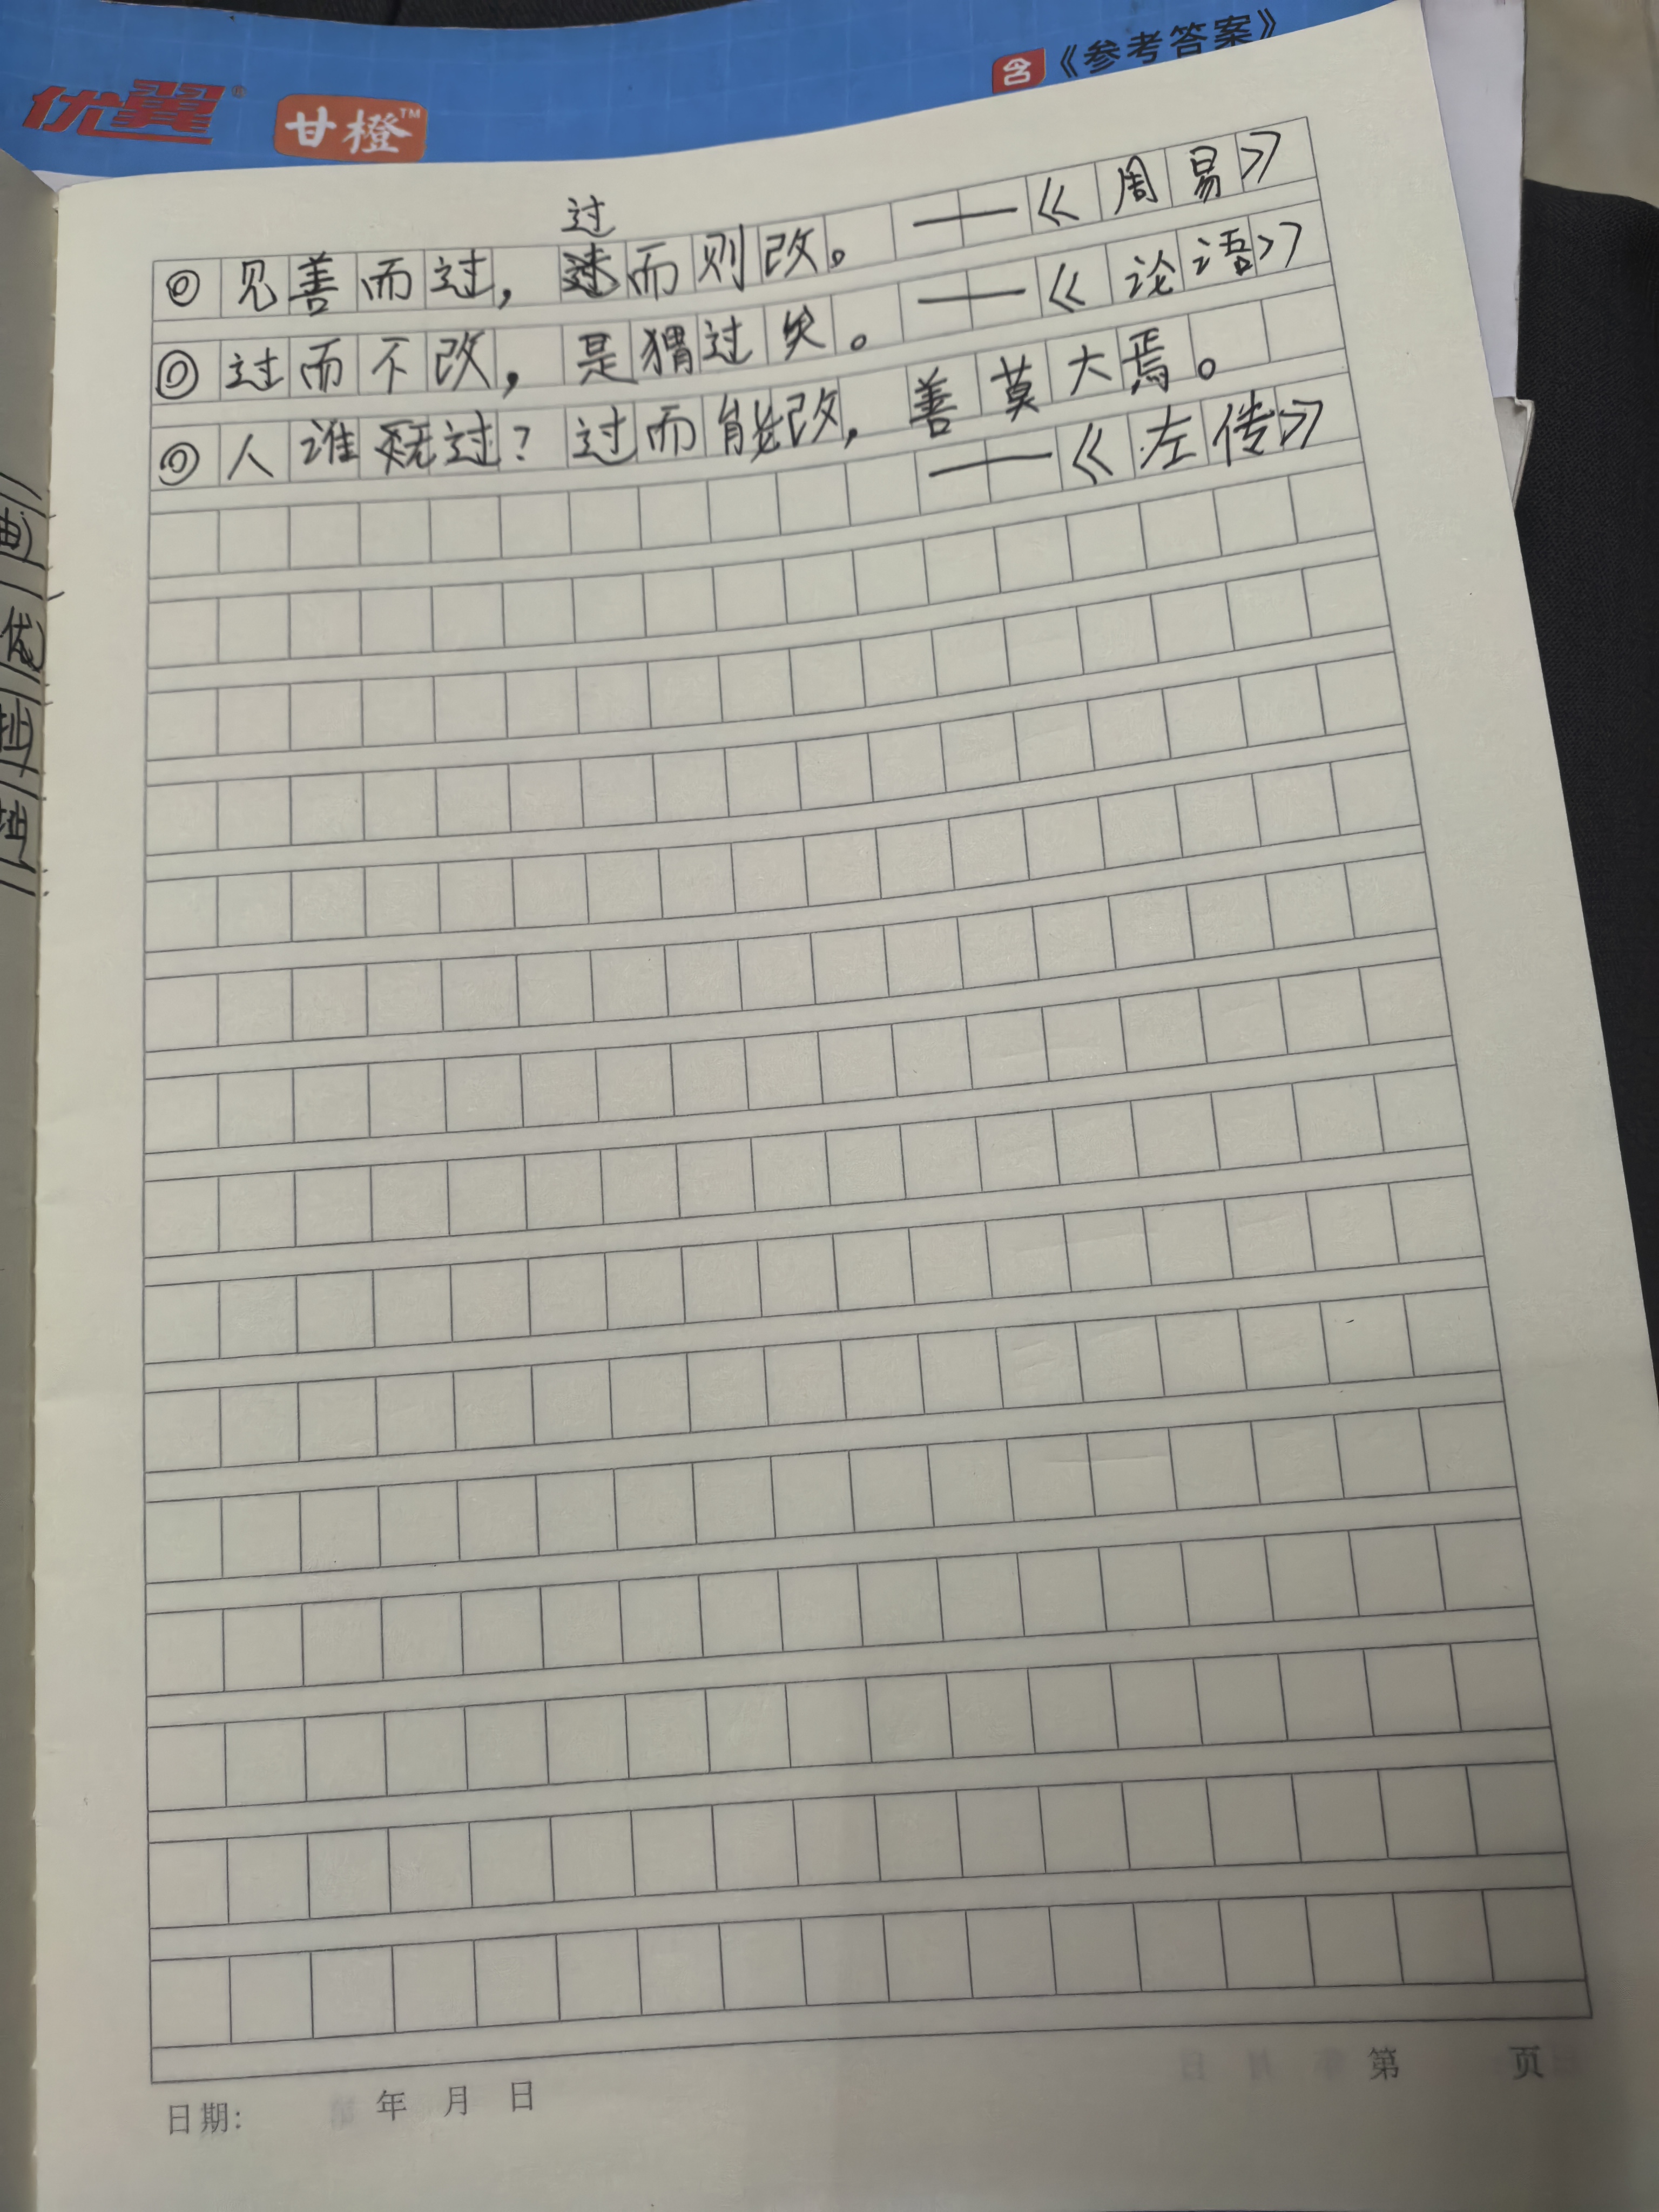 优翼® 甘橙™ 含《参考答案》
过
◎见善而过，过而则改。——《周易》
◎过而不改，是猬过失。——《论语》
◎人谁无过？过而能改，善莫大焉。
——《左传》
日期： 年 月 日 第 页